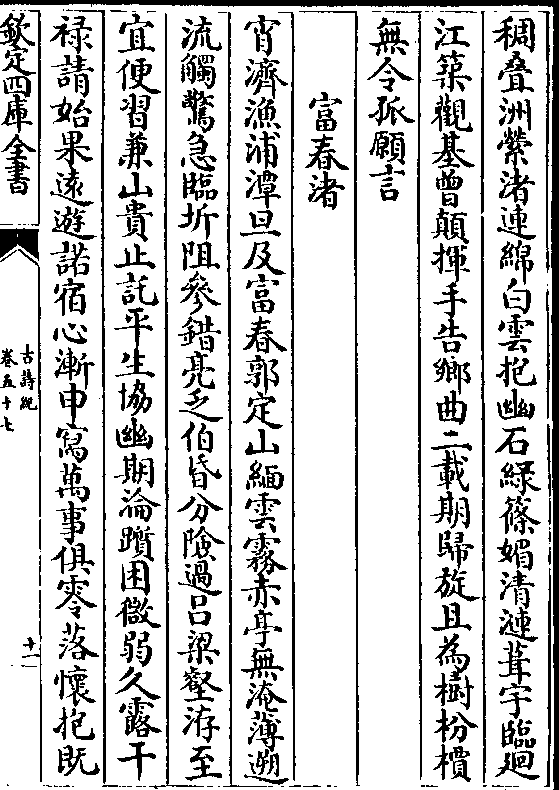 稠疊洲縈渚連綿白雲抱幽石緑篠媚清漣葺宇臨迴
江築觀基曾顛揮手告鄉曲二載期歸旋且為樹枌檟
無令孤願言
富春渚
宵濟漁浦潭旦及富春郭定山緬雲霧赤亭無淹薄遡
流觸驚急臨圻阻參錯亮乏伯昏分險過呂梁壑洊至
宜便習兼山貴止託平生協幽期淪躓困微弱久露干
禄請始果遠遊諾宿心漸申寫萬事俱零落懷抱既
欽定四庫全書
古詩紀
卷五十七
十一